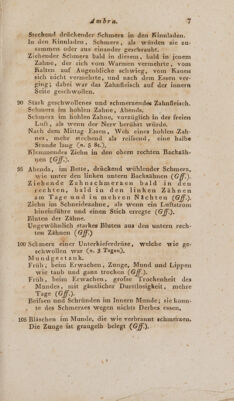 Ambra. 7
Stechend drückender Schmerz in den Kinnladen.
In den Kinnladen, Schmerz, als würden sie zu-
sammen oder aus einander geschraubt.
Ziehender Schmerz bald in diesem, bald in jenem
Zahne, der sich vom Warmen vermehrte, vom
Kalten auf Augenblicke schwieg, vom Kauen
sich nicht vermehrte, und nach dem Essen ver-
ging; dabei war das Zahnfleisch auf der innern
Seite geschwollen.
90 Stark geschwollenes und schmerzendes Zahnfleisch.
Schmerz im hohlen Zahne, Abends.
Schmerz im hohlen Zahne, vorzüglich in der freien
Luft, als würde der Nerv berührt.
Nach dem Mittag Essen, Weh eines hohlen Zah-
nes, mehr stechend als reißend, eine halbe
Stunde lang (n. 5 St.).
Klemmendes Ziehn in den obern rechten Backzäh-
nen (Gff.).
95 Abends, im Bette, drückend wühlender Schmerz,
wie unter den linken untern Backzähnen (Gff.).
Ziehende Zahnschmerzen bald in den
rechten, bald in den linken Zähnen
am Tage und in mehrern Nächten (Gff.).
Ziehn im Schneidezahne, als wenn ein Luftstrom
hineinführe und einen Stich erregte (Gff.).
Bluten der Zähne.
Ungewöhnlich starkes Bluten aus den untern rech-
ten Zähnen (Gff.).
100 Schmerz einer Unterkieferdrüse, welche wie ge-
schwollen war (n. 3 Tagen).
Mundgestank.
Früh, beim Erwachen, Zunge, Mund und Lippen
wie taub und ganz trocken (Gff.).
Früh, beim Erwachen, große Trockenheit des
Mundes, mit gänzlicher Durstlosigkeit, mehre
Tage (Gff.).
Beißen und Schründen im Innern Munde; sie konn-
te des Schmerzes wegen nichts Derbes essen.
105 Bläschen im Munde, die wie verbrannt schmerzen.
Die Zunge ist graugelb belegt (Gff.).